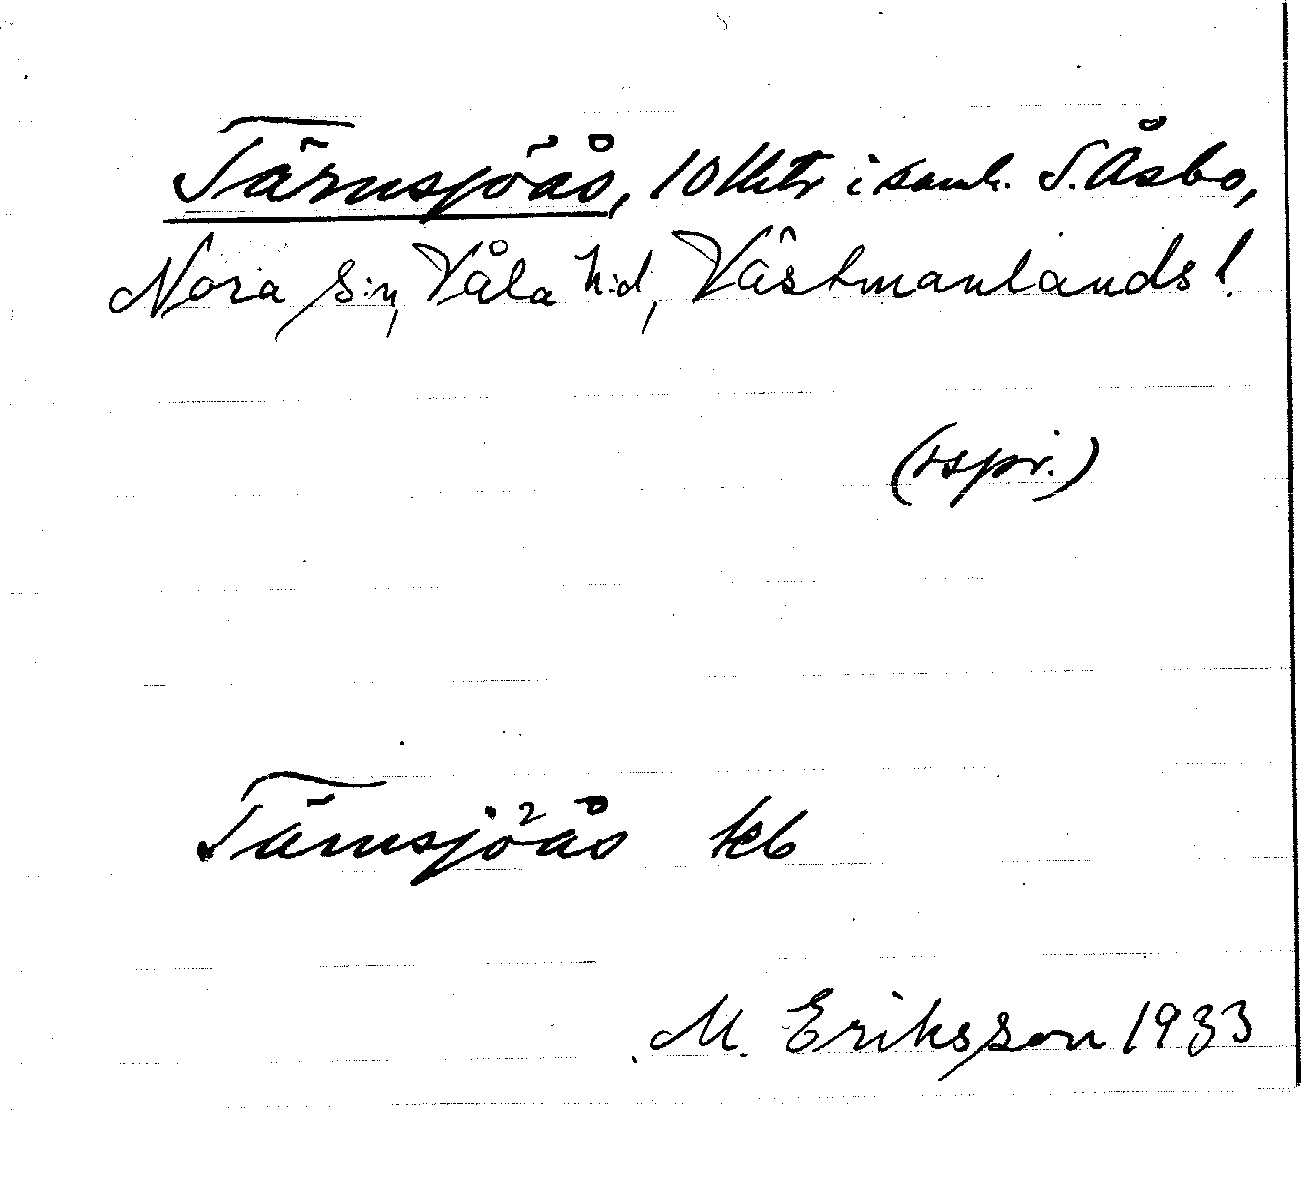 Tärnsjöås, 10 lhtr i samh. S. Åsbo,
Nora s:n, Våla h:d, Västmanlands l.
(rspr.)
Tärnsjöås teb
M. Eriksson 1933